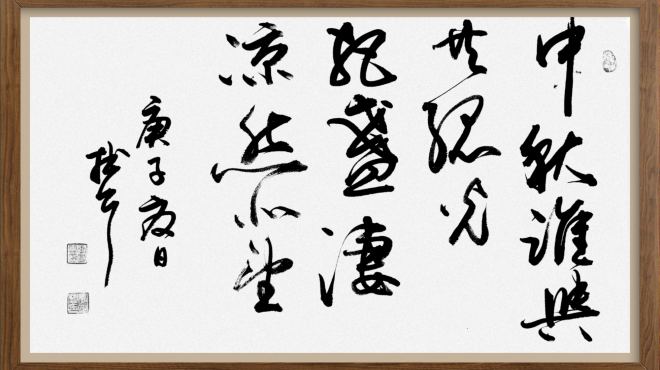 中秋誰與
共孤光
把盞淒
凉然北望
庚子夏日